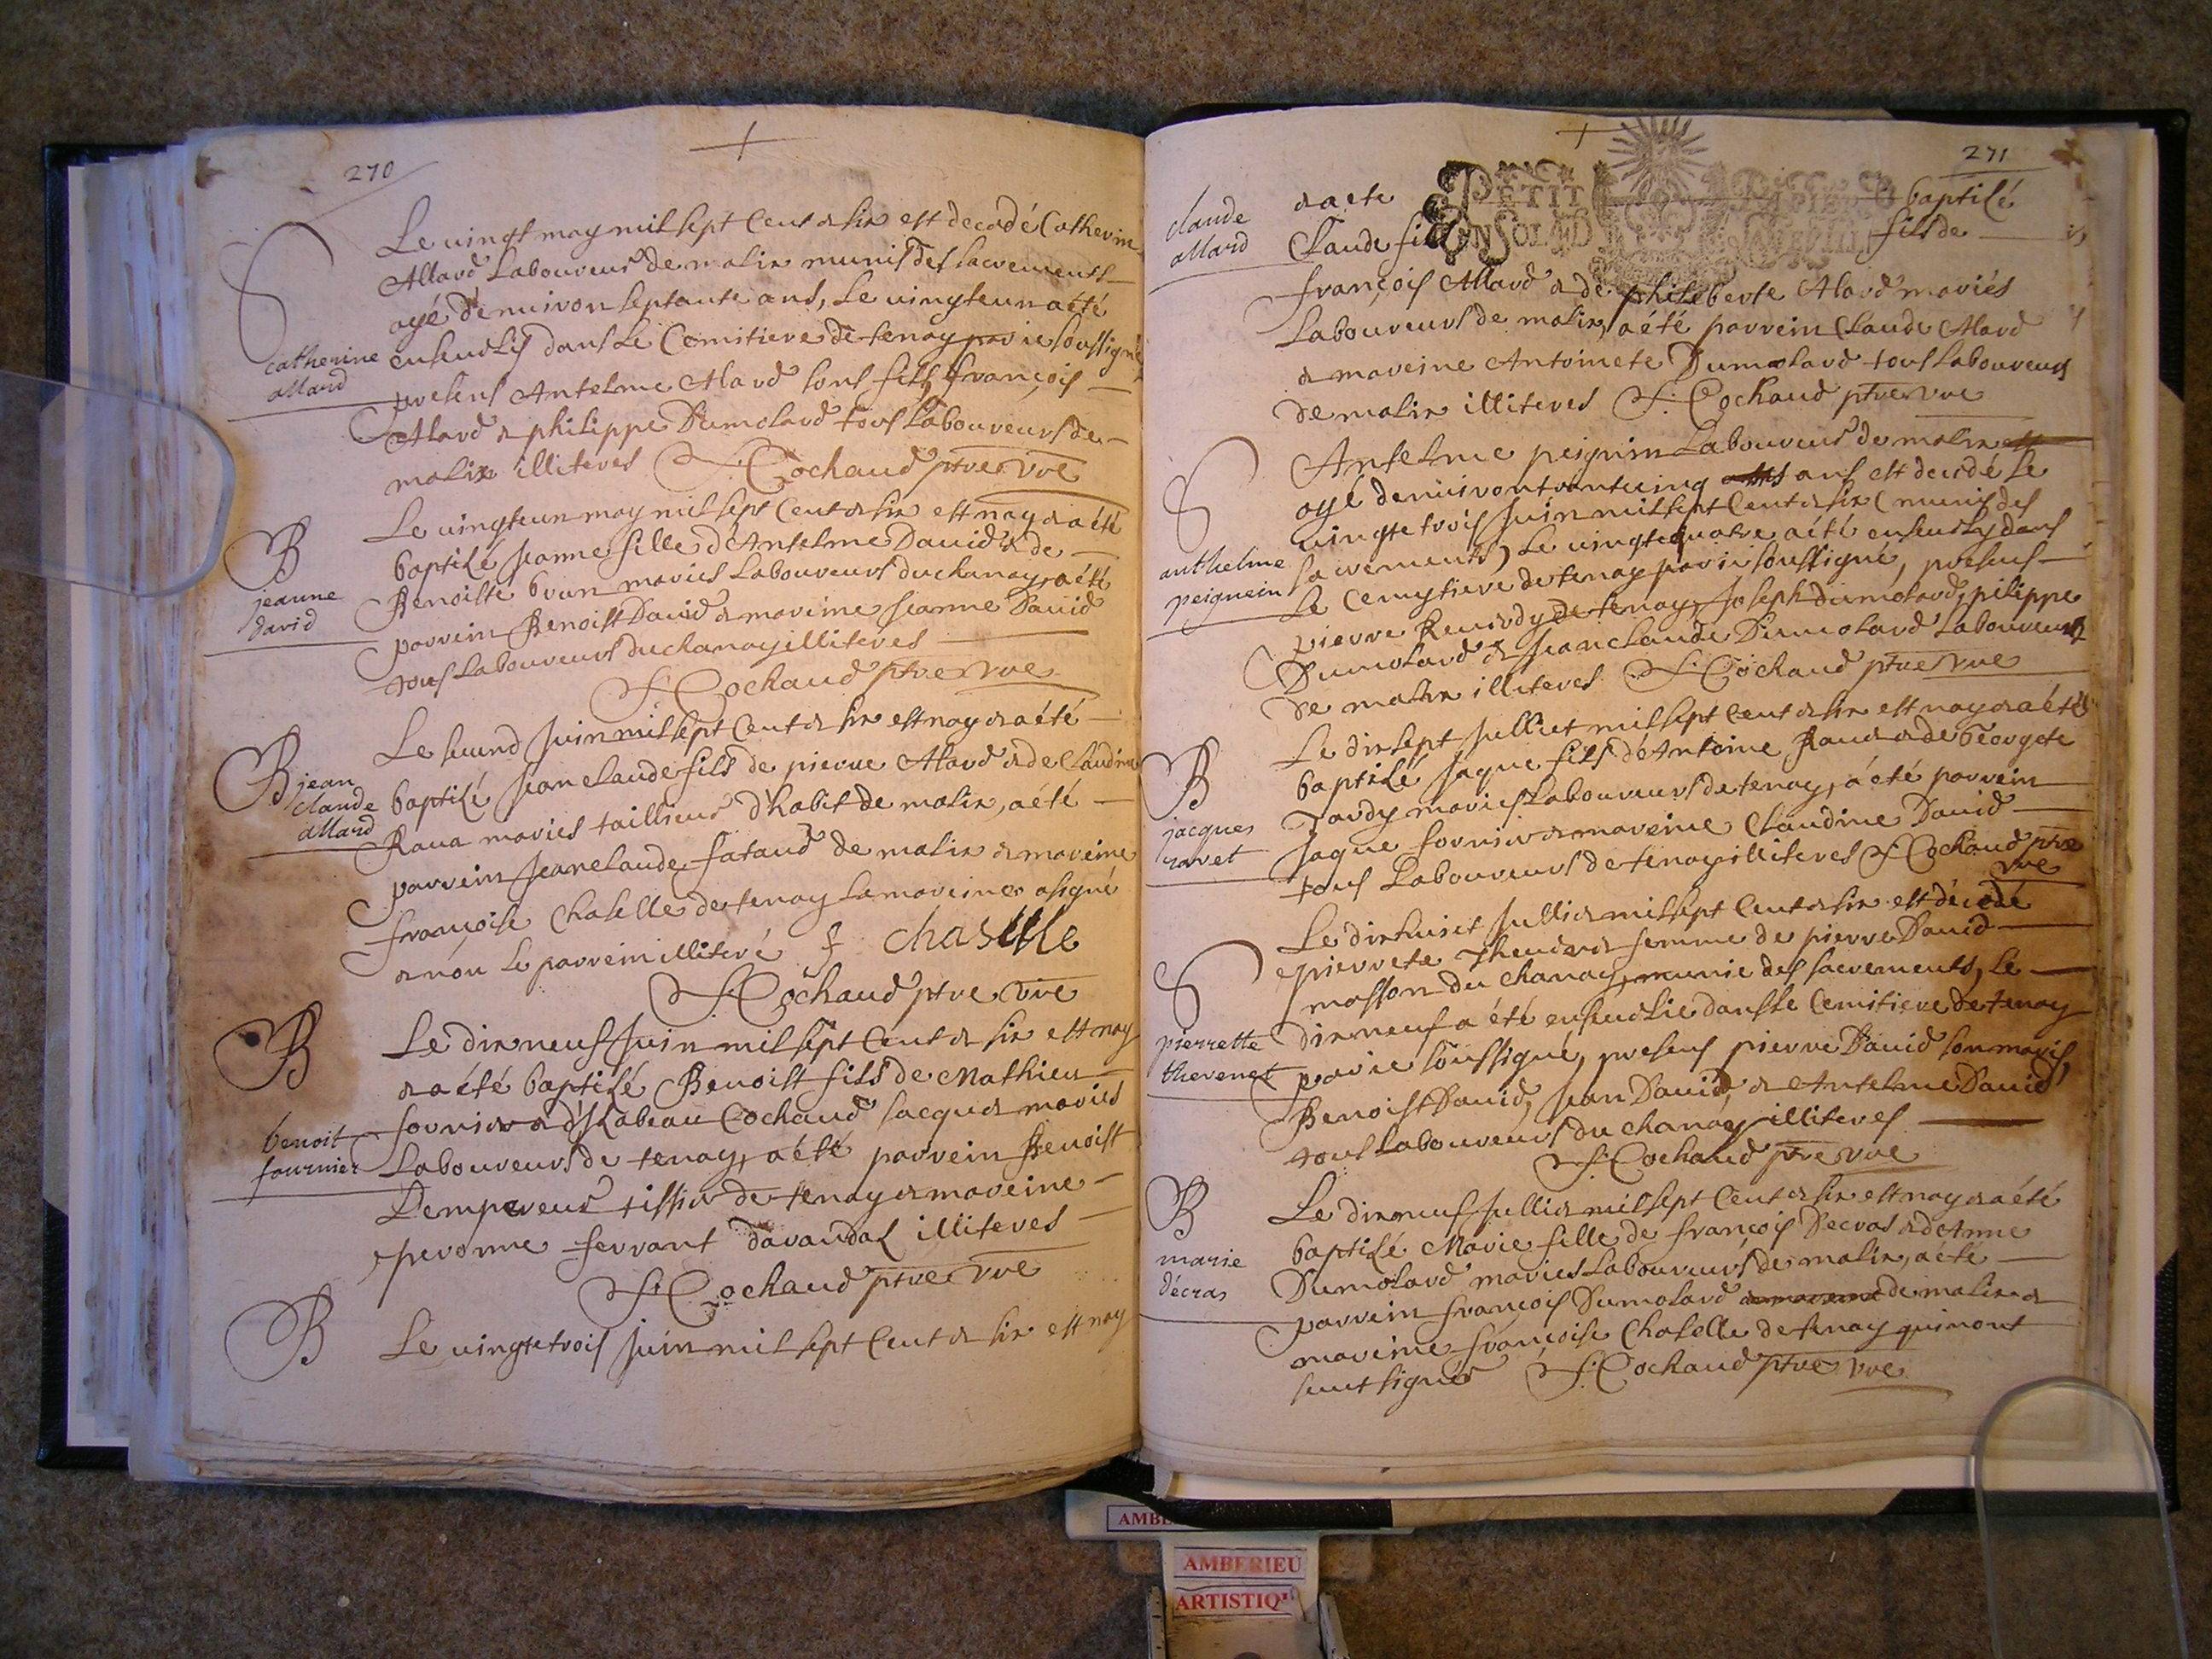 270
Le vingt may mil sept Cent & six est decedé Catherin
Allard Laboureur de malix munis des sacrements
agé denuiron septante ans, Le vingteun a été
catherine
allard
enseuelis dans Le Cemitiere de tenay par ie soussigné
presens Antelme Alard sons fils, françois
Alard & philippe Dumolard tous Laboureurs de
malix illiteres F. Cochaud ptre vre
Le vingteun may mil sept Cent & six est nay & a été
B
jeanne
david
baptisé Jeanne fille d'Antelme Dauid & de
Benoiste brun mariés Laboureurs du chanay, a été
parrein Benoist Dauid & mareine Jeanne Dauid
tous Laboureurs du chanay illiteres
F. Cochaud ptre vre
Le second Juin mil sept Cent & six est nay & a été
B jean
claude
allard
baptisé Jeanclaude fils de pierre Alard & de Claudine
Raua mariés taillieur d'habit de malix, a été
parrein Jeanclaude fataud de malix & mareine
françoise Chaselle de tenay la mareine a signé
& non le parrein illiteré f chaselle
F. Cochaud ptre vre
B
Le dix neuf Juin mil sept Cent & six est nay
& a été baptisé Benoist fils de Mathieu
fornier & d'Isabeau Cochaud Jacquet mariés
benoit
fournier
Laboureurs de tenay, a été parrein Benoist
Lempereur tissier de tenay & mareine
peronne ferrant dauandas illiteres
F. Cochaud ptre vre
B
Le vingtetrois Juin mil sept Cent & six est nay
271
claude
allard
& a ete baptisé
PETIT PAPIER
Claude fils fils de
EN SOL 4D
françois Allard & de philiberte Alard mariés
Laboureurs de malix, a été parrein Claude Alard
& mareine Antoinete Dumolard tous Laboureurs
de malix illiteres F. Cochaud ptre vre
Antelme peignin Laboureur de malix est
agé denuiron trantecinq ans est decedé Le
vingtetrois Juin mil sept Cent & six (munis des
anthelme
peignein
sacrements) Le vingtequatre a été enseuely dans
Le Cemytiere de tenay par ie soussigné, presens
pierre Reuirdy de tenay, Joseph dumolard, pilippe
Dumolard & Jeanclaude Dumolard Laboureurs
de malix illiteres F. Cochaud ptre vre
Le dixsept Julliet mil sept Cent & six est nay & a été
B
jacques
ravet
baptisé Jaque fils d'Antoine Raua & de George te
Tardy mariés Laboureurs de tenay, a été parrein
Jaque fornier & mareine Claudine Dauid
tous Laboureurs de tenay illiteres F. Cochaud ptre
vre
Le dixhuict Jullier mil sept Cent & six est décedé
pierrete Theuenet femme de pierre Dauid
masson du chanay, munie des sacrements, Le
pierrette
thevenet
dixneuf a été enseuelie dans Le Cemitiere de tenay
par ie soussigné, presens pierre Dauid son maris,
Benoist Dauid, Jean Dauid, & Antelme Dauid
tous Laboureurs du chanay illiteres
F. Cochaud ptre vre
B
marie
décras
Le dixneuf Jullier mil sept Cent & six est nay & a été
baptisé Marie fille de françois Decras & d'Anne
Dumolard mariés Laboureurs de malix, a été
parrein françois Dumolard & mareine de malix &
mareine françoise Chaselle de tenay qui n'ont
sceut signer F. Cochaud ptre vre
AMBERIEU
ARTISTIQ